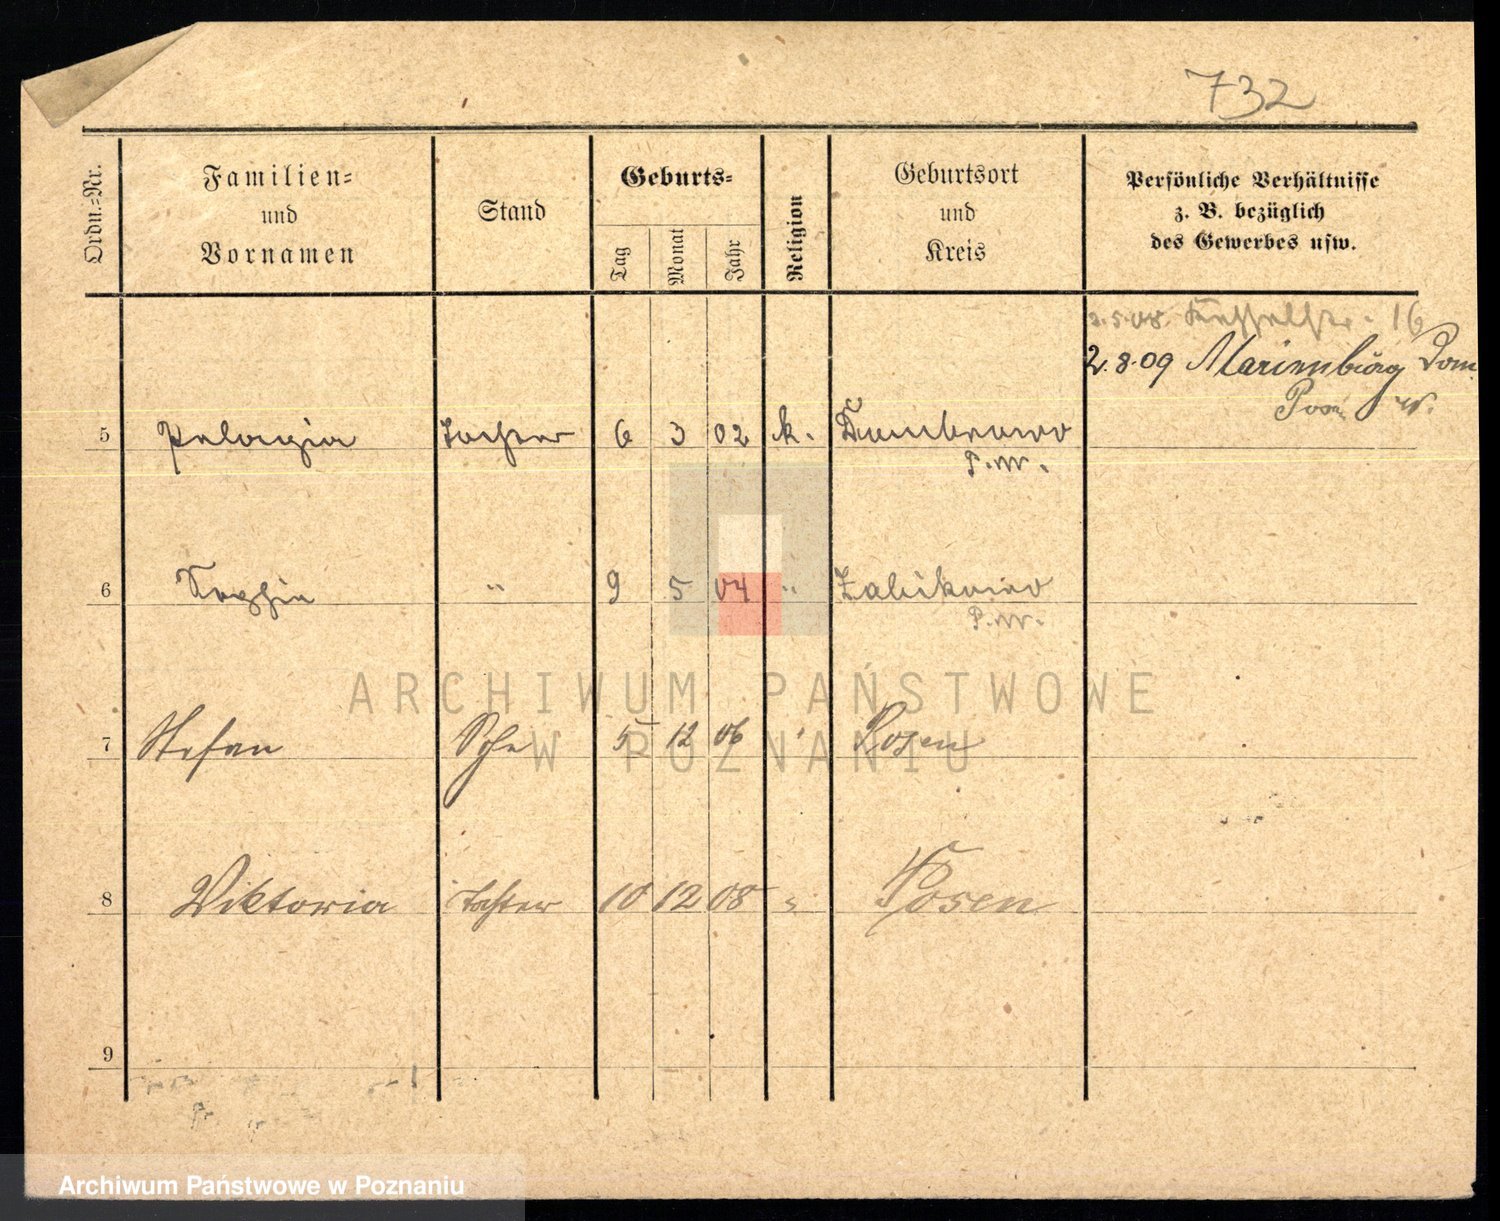 732
Ordn.-Nr.
Familien-
und
Vornamen
Stand
Geburts-
Tag
Monat
Jahr
Religion
Geburtsort
und
Kreis
Persönliche Verhältnisse
z. B. bezüglich
des Gewerbes usw.
3.5.08. 16
2.8.09 Marienburg Dom
Posen W.
5 Pelagia Tochter 6 3 02 k. Dombrowo
P. W.
6 Sophia " 9 5 04 " Zabikowo
P. W.
ARCHIWUM PAŃSTWOWE
W POZNANIU
7 Stefan Sohn 5 12 06 " Posen
8 Viktoria Tochter 10 12 08 " Posen
9
Archiwum Państwowe w Poznaniu